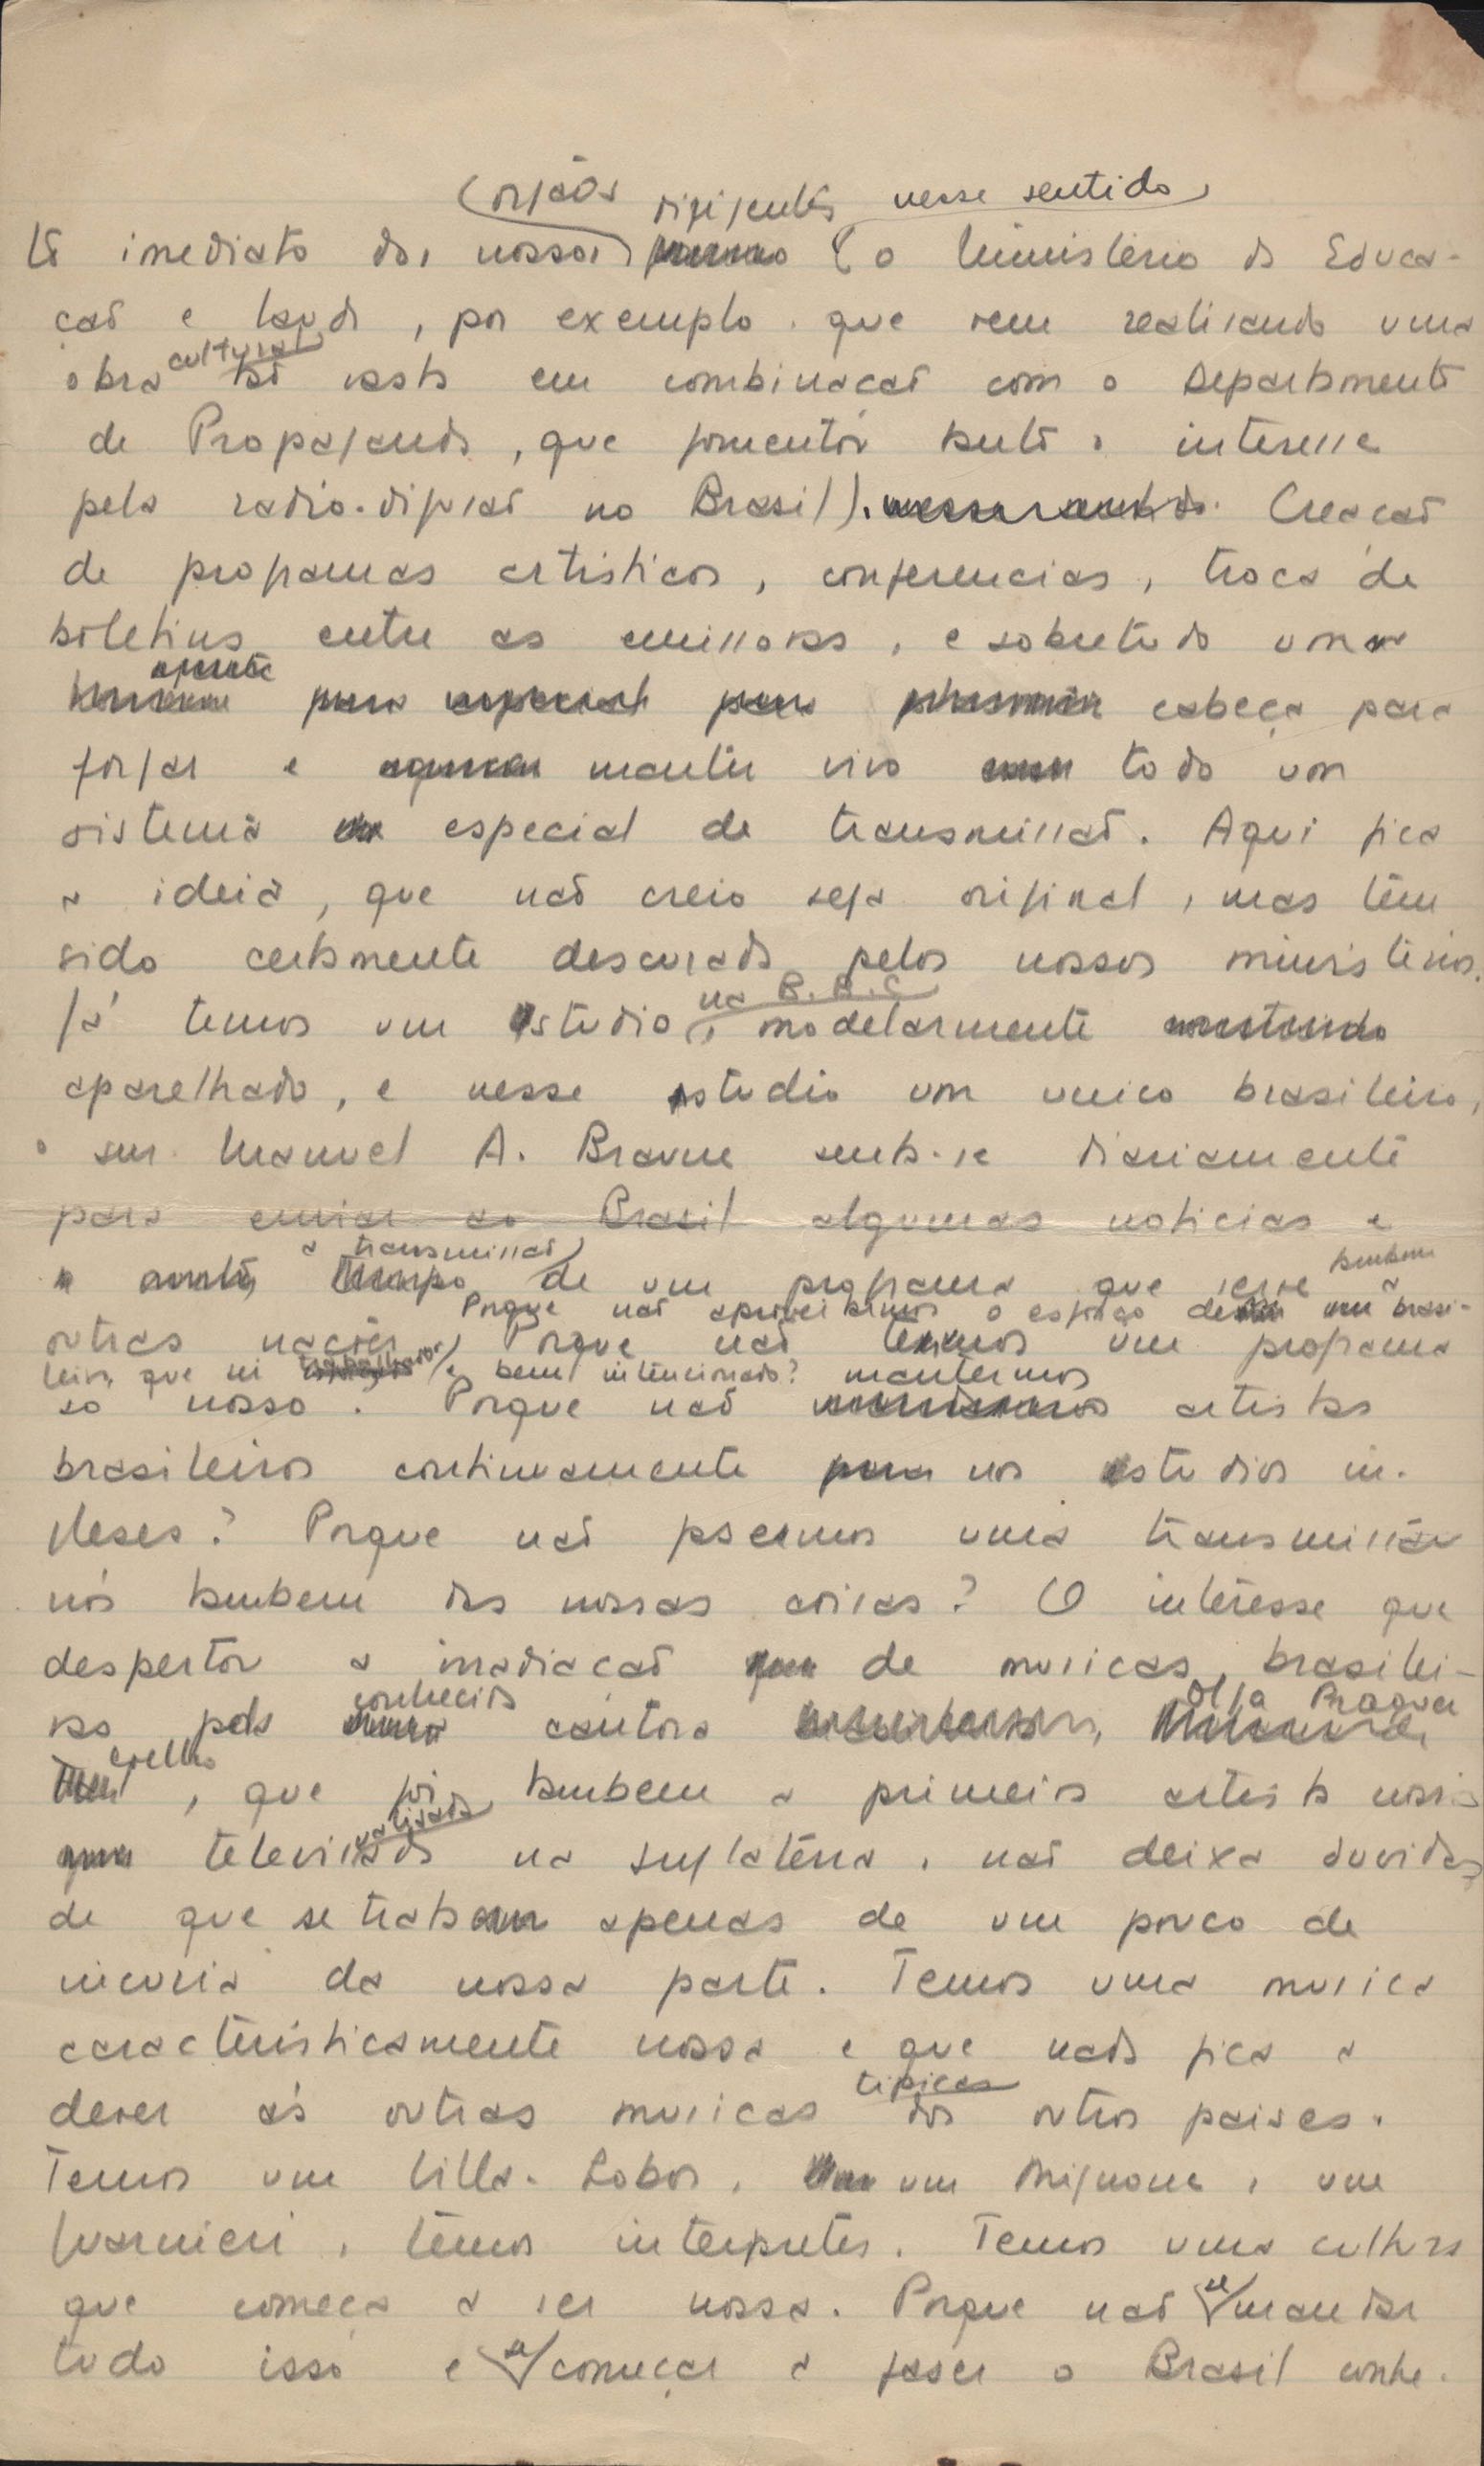 orgãos dirigentes nesse sentido
to imediato dos nossos (o Ministerio da Educa-
ção e Saude, por exemplo que vem realisando uma
cultural
obra tão vasta em combinação com o Departamento
de Propaganda, que fomentou tanto o interesse
pela radio-difusão no Brasil). Creação
de programas artisticos, conferencias, troca de
boletins entre as emissoras, e sobretudo uma
cabeça para
forjar e manter vivo todo um
sistema especial de transmissão. Aqui fica
a ideia, que não creio seja original, mas tem
sido certamente descurada pelos nossos ministerios.
na B.B.C
Já temos um estudio, modelarmente
aparelhado, e nesse estudio um unico brasileiro,
o snr. Manuel A. Braune senta-se diariamente
para enviar ao Brasil algumas noticias e
a transmissão tambem
de um programa que serve a
Porque não aproveitarmos o esforço de um brasi-
outras nações. Porque não termos um programa
leiro que vi trabalhador e bem intencionado? mantermos
só nosso. Porque não artistas
brasileiros continuamente nos estudios in-
gleses? Porque não fazermos uma transmissão
nós tambem das nossas coisas? O interesse que
despertou a irradiação de musicas brasilei-
conhecida Olga Praguer
ras pela cantora
Coelho
, que foi tambem a primeira artista nossa
nalisada
televisada na Inglaterra, não deixa duvidas
de que se trata apenas de um pouco de
incuria da nossa parte. Temos uma musica
caracteristicamente nossa e que nada fica a
tipicas
dever ás outras musicas dos outros paises.
Temos um Villa-Lobos, um Mignone, um
Guarnieri, temos interpretes. Temos uma cultura
que começa a ser nossa. Porque não se mandar
tudo isso e se começar a fazer o Brasil conhe-